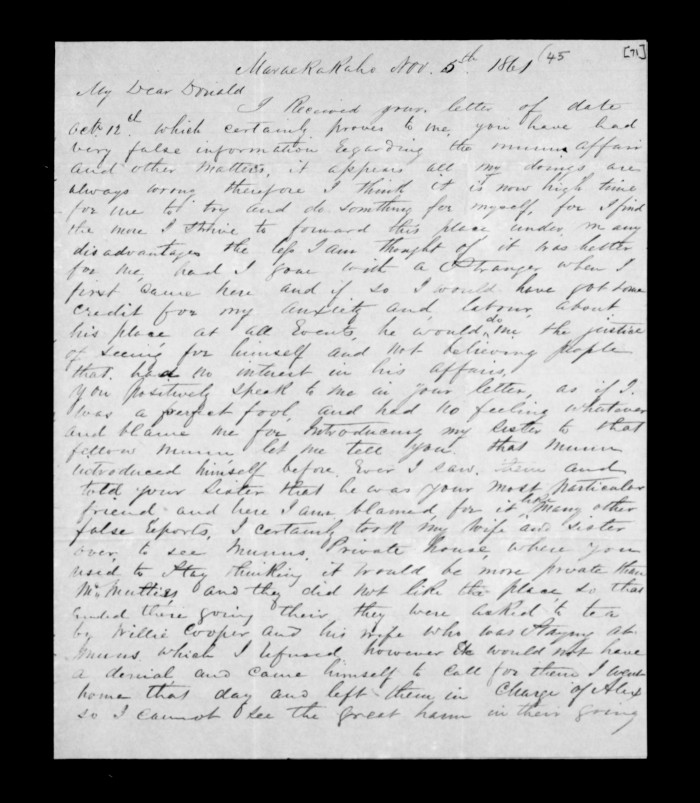 [71]
Maraekakaho Nov. 5th 1861 (45
My Dear Donald
I Received your letter of date
Oct. 12th which certainly proves to me, you have had
very false information regarding the Munn affair
and other matters, it appears all my doings are
always wrong therefore I think it is now high time
for me to try and do somthing for myself, for I find
the more I strive to forward this place under many
disadvantages the less I am thought of it was better
for me, had I gone with a Stranger when I
first came here and if so I would have got some
credit for my anxiety and labour about
his place at all Events, he would do me the justice
of seeing for himself and not believing people
that had no interest in his affairs,
You positively speak to me in your letter, as if I
was a perfect fool, and had no feeling whatever
and blame me for Introducing my sister to that
fellow Munn, let me tell you that Munn
introduced himself before Ever I saw them and
told your Sister that he was your most particular
friend and here I am blamed for it like many other
false reports, I certainly took my wife and sister
over to see Munns Private house, where you
used to stay thinking it would be more private than
and they did not like the place so that
ended there going their they were asked to tea
by Willie Cooper and his wife who was staying at
Munns which I refused however he would not have
a denial and came himself to call for them I went
home that day and left them in charge of Alex
so I cannot see the great harm in their going